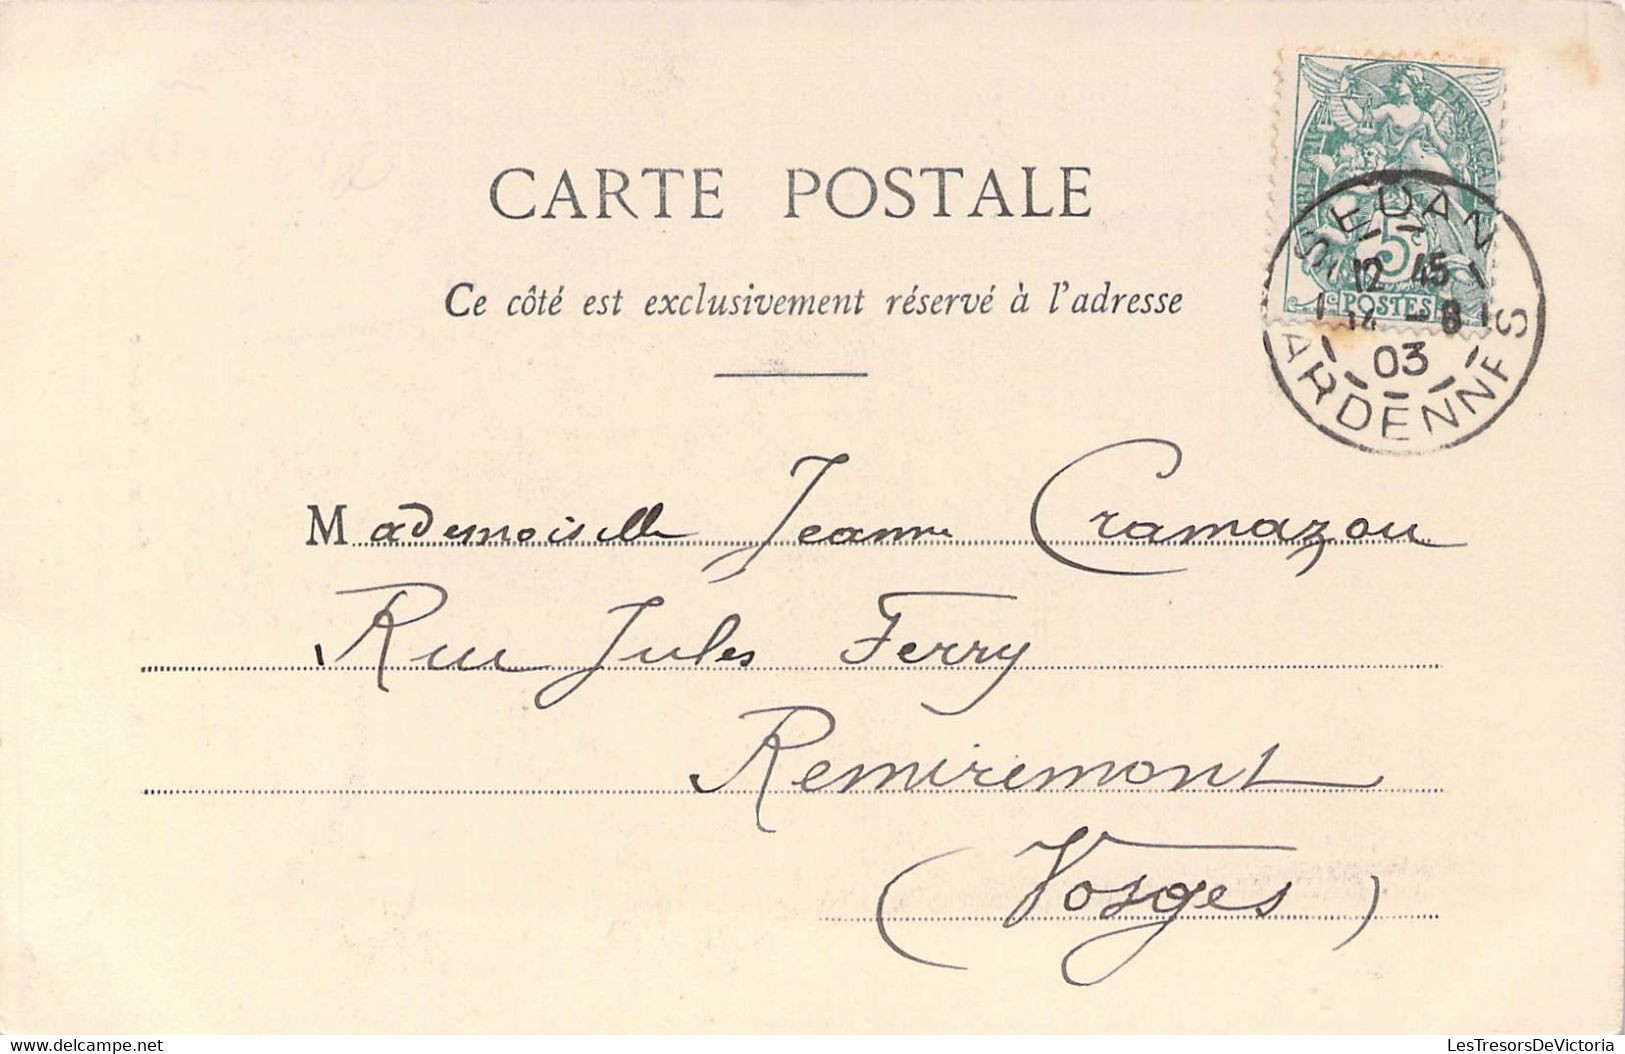 CARTE POSTALE
Ce côté est exclusivement réservé à l'adresse
RÉPUBLIQUE FRANÇAISE
5c
POSTES
SEDAN
12 45
14 - 8
03
ARDENNES
Mademoiselle Jeanne Cramazou
Rue Jules Ferry
Remiremont
(Vosges)
Delcampe.net
LesTresorsDeVictoria